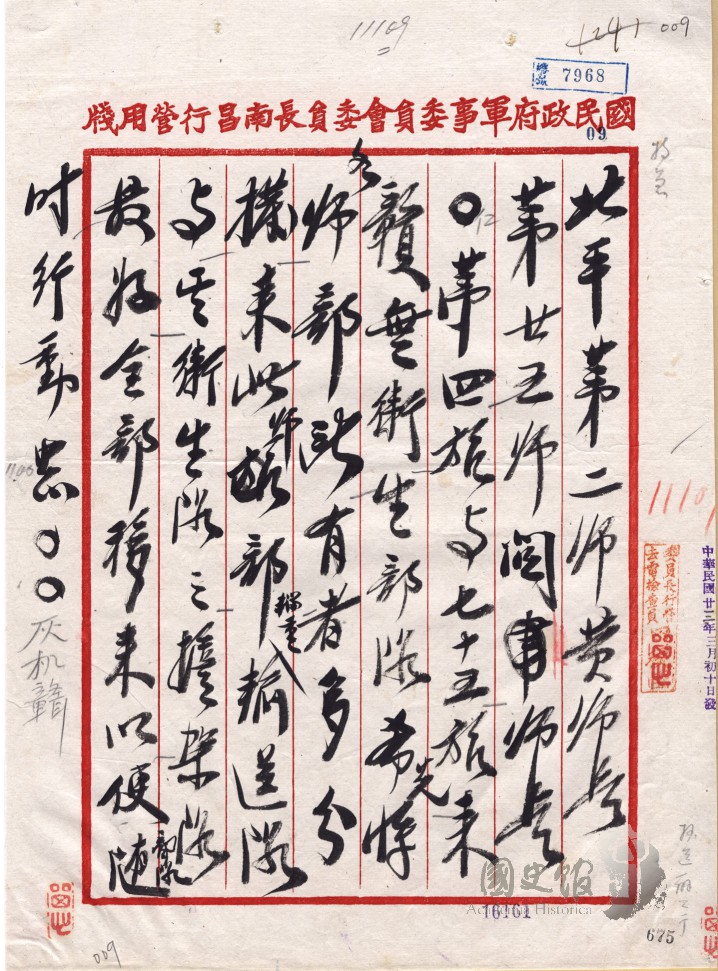 11109
(24)
009
7968
國民政府軍事委員會委員長南昌行營用牋
09
特急
北平第二師黃師長
第廿五師關師長
〇第四旅与七十五旅來
贛無衛生部隊希先將
各師部所有者多分
撥來此師旅部輜重輸送隊
与其衛生隊之擔架隊
最好全部移來以便部隊隨
时行動 中〇〇
中華民國廿三年三月初十日發
11109
1106
009
國史館
Academia Historica
16161
675